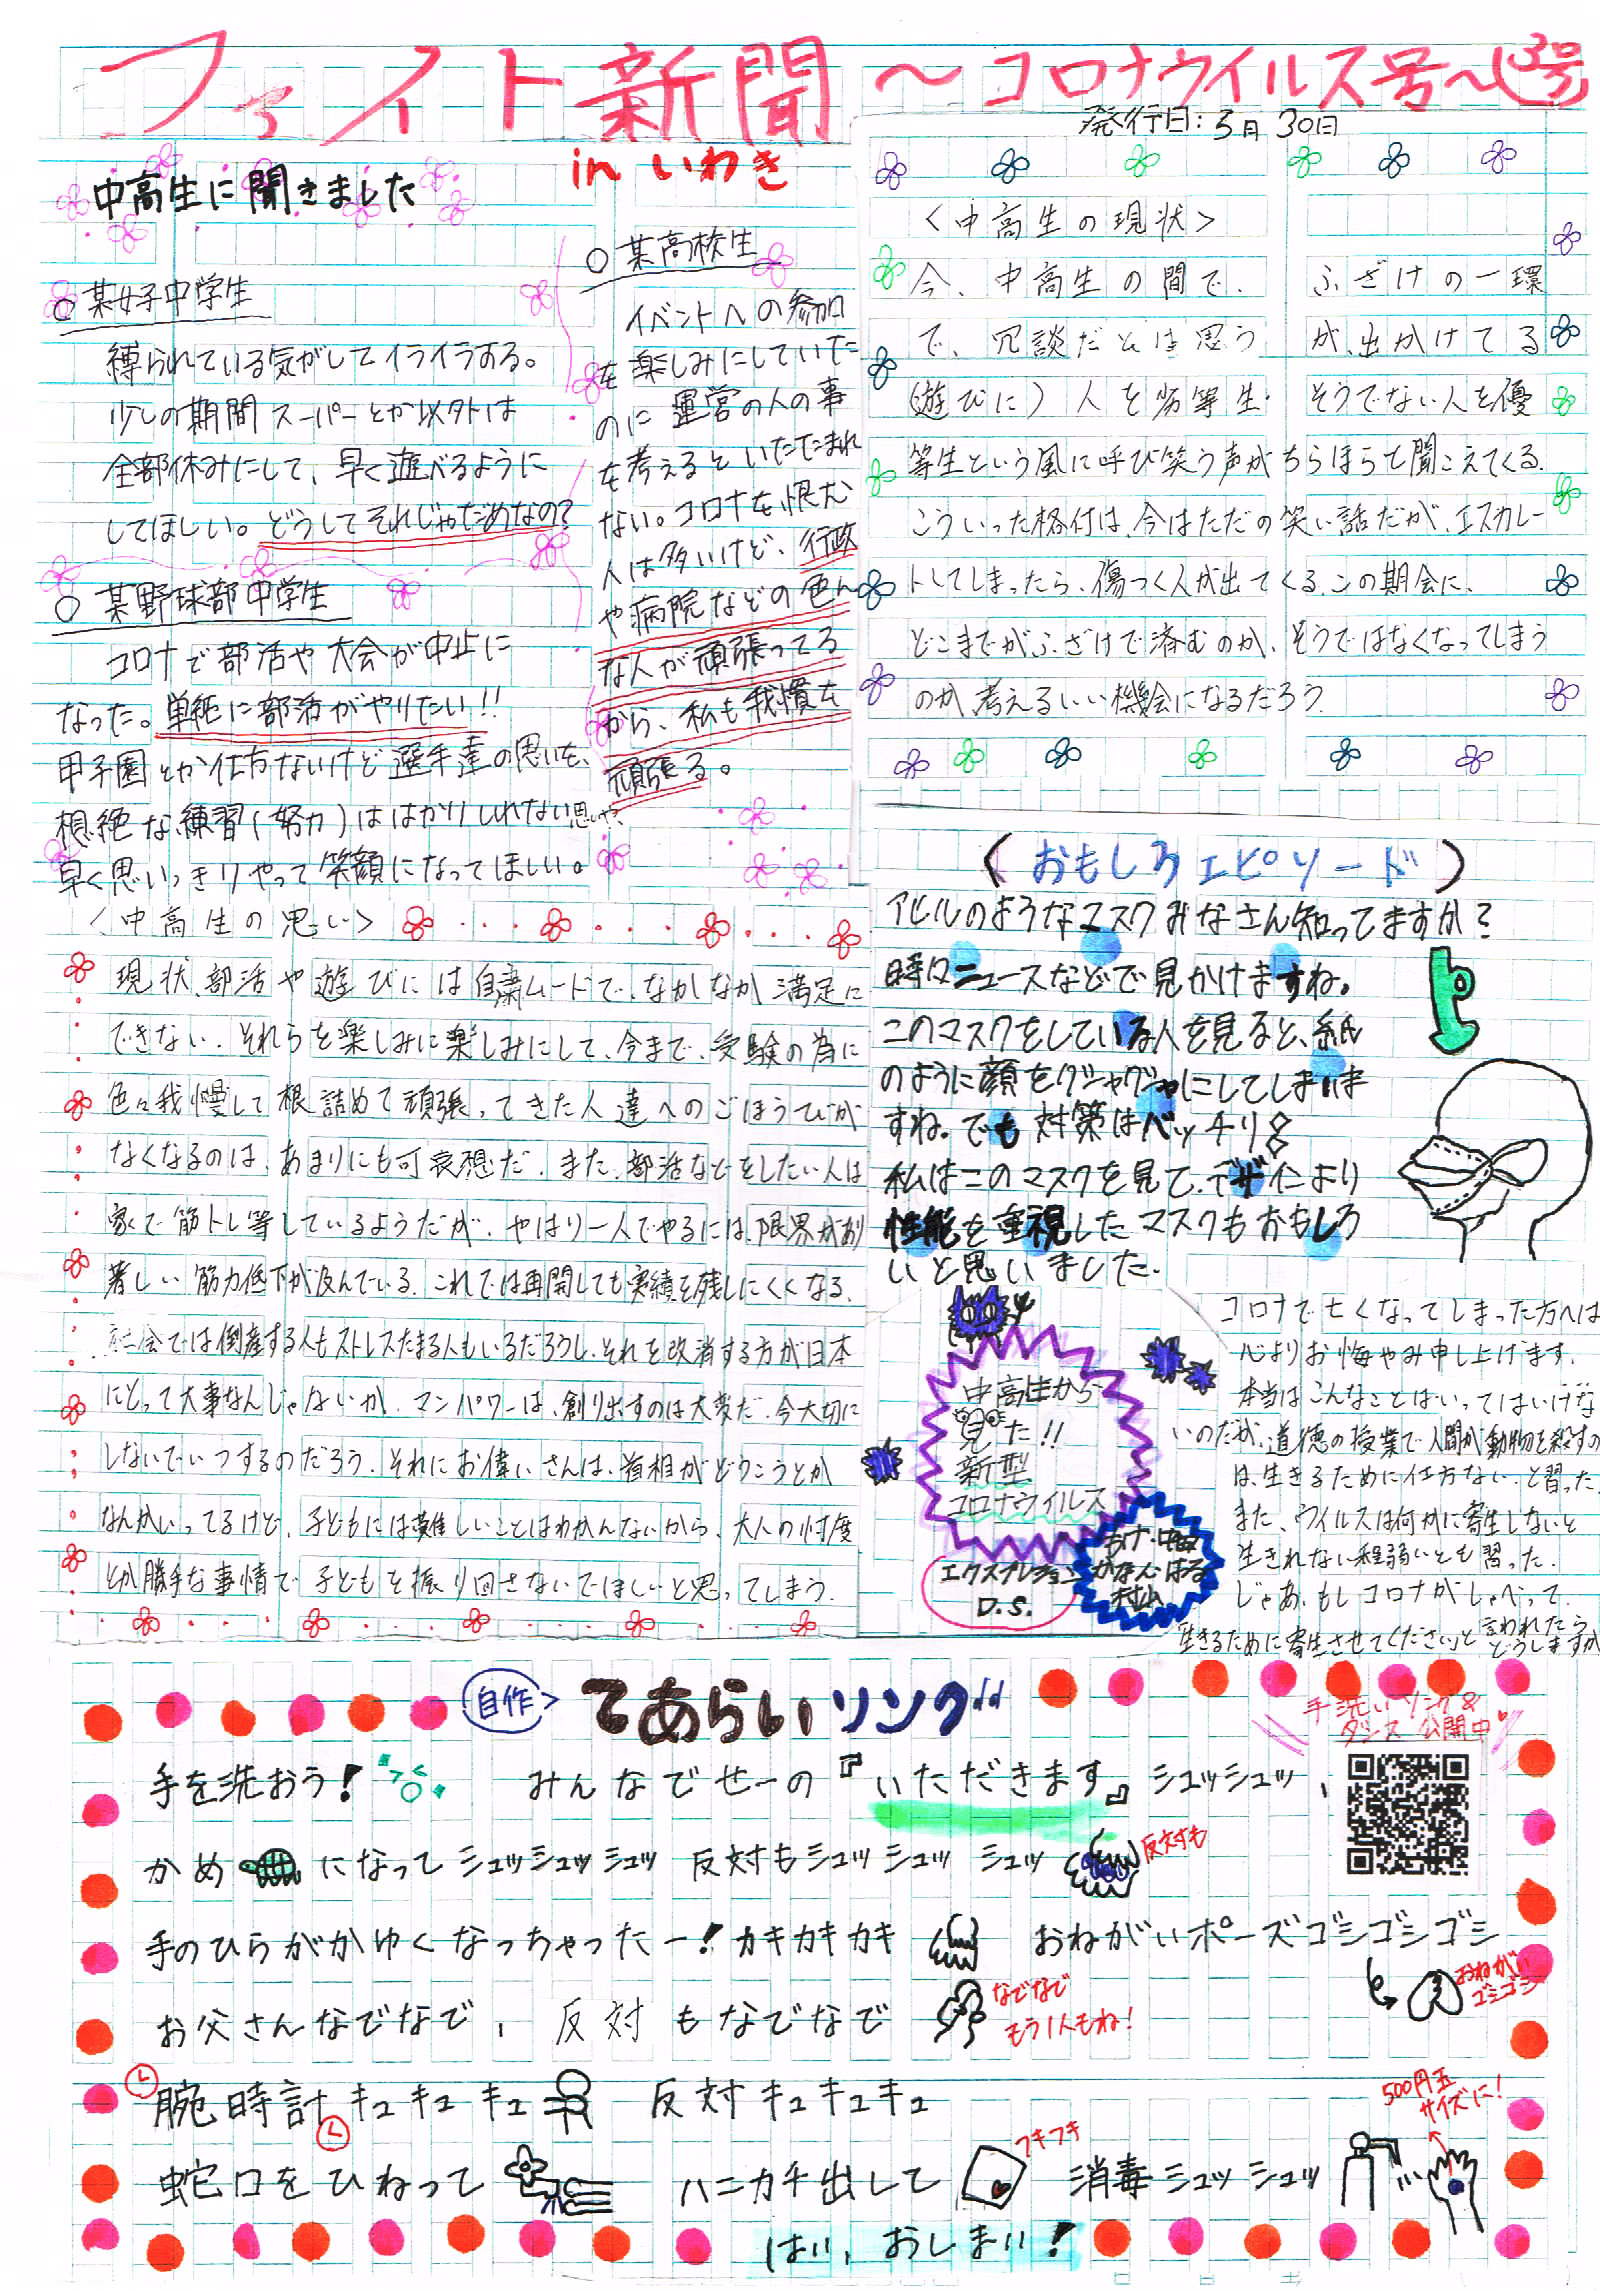 ファイト新聞 ～コロナウイルス号～(3号)
発行日:3月30日
in いわき
中高生に聞きました
○某女子中学生
縛られている気がしてイライラする。
少しの期間スーパーとか以外は
全部休みにして、早く遊べるように
してほしい。どうしてそれじゃだめなの?
○某野球部中学生
コロナで部活や大会が中止に
なった。単純に部活がやりたい!!
甲子園とか仕方ないけど選手達の思いを、
想絶な練習(努力)ははかりしれない思いや、
早く思いっきりやって笑顔になってほしい。
○某高校生
イベントへの参加
を楽しみにしていた
のに運営の人の事
を考えるといたたまれ
ない。コロナを恨む
人は多いけど、行政
や病院などの色ん
な人が頑張ってる
から、私も我慣を
頑張る。
<中高生の現状>
今、中高生の間で、ふざけの一環
で、冗談だとは思うが、出かけてる
(遊びに)人を劣等生・そうでない人を優
等生という風に呼び笑う声がちらほらと聞こえてくる.
こういった格付は、今はただの笑い話だが、エスカレー
トしてしまったら、傷つく人が出てくる.この期会に、
どこまでがふざけで済むのか、そうではなくなってしまう
のか考えるいい機会になるだろう.
<中高生の思い>
現状、部活や遊びには自粛ムードで、なかなか満足に
できない.それらを楽しみに楽しみにして、今まで、受験の為に
色々我慢して根詰めて頑張ってきた人達へのごほうびが
なくなるのは、あまりにも可哀想だ.また、部活などをしたい人は
家で筋トレ等しているようだが、やはり一人でやるには、限界があり
著しい筋力低下が及んでいる.これでは再開しても実績を残しにくくなる.
社会では倒産する人もストレスたまる人もいるだろうし、それを改消する方が日本
にとって大事なんじゃないか.マンパワーは、創り出すのは大変だ.今大切に
しないでいつするのだろう.それにお偉いさんは、首相がどうこうとか
なんかいってるけど、子どもには難しいことはわかんないから、大人の忖度
とか勝手な事情で子どもを振り回さないでほしいと思ってしまう.
<おもしろエピソード>
アヒルのようなマスクみなさん知ってますか?
時々ニュースなどで見かけますね。
このマスクをしている人を見ると、紙
のように顔をクシャクシャにしてしまいま
すね。でも対策はバッチリ!
私はこのマスクを見て、デザインより
性能を重視したマスクもおもしろ
いと思いました.
中高生から
見た!!
新型
コロナウイルス
エクスプレション
D.S.
かなん・はる
村山
コロナで亡くなってしまった方へは
心よりお悔やみ申し上げます.
本当はこんなことはいってはいけな
いのだが、道徳の授業で人間が動物を殺すの
は、生きるために仕方ない.と習った.
また、ウイルスは何かに寄生しないと
生きれない程弱いとも習った.
じゃあ、もしコロナがしゃべって、
生きるために寄生させてくださいと言われたら
どうしますか
自作 てあらいソング
手洗いソング&
ダンス公開中
手を洗おう! みんなでせーの『いただきます』シュッシュッ、
かめになってシュッシュッシュッ 反対もシュッシュッシュッ
反対も
手のひらがかゆくなっちゃったー!カキカキカキ おねがいポーズゴシゴシゴシ
おねがい
ゴシゴシ
お父さんなでなで、反対もなでなで
なでなで
もう1人もね!
腕時計キュキュキュ 反対キュキュキュ
500円玉
サイズに!
蛇口をひねって ハニカチ出して 消毒シュッシュッ
フキフキ
はい、おしまい!